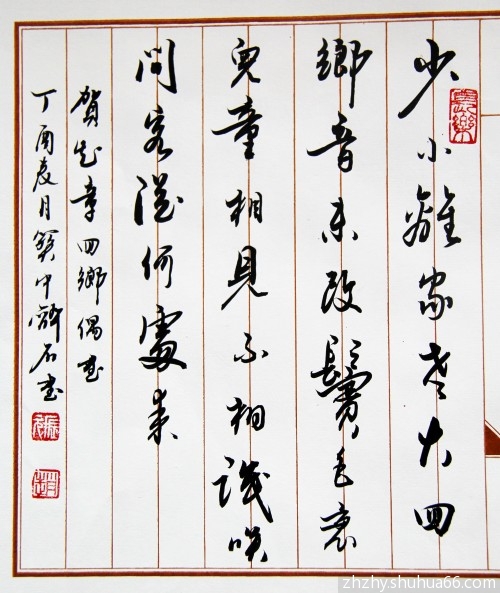 少小離家老大回
鄉音未改鬢毛衰
兒童相見不相識咲
問客從何處來
賀知章回鄉偶書
丁酉夏月冀中石書
zhzhyshuhua66.com